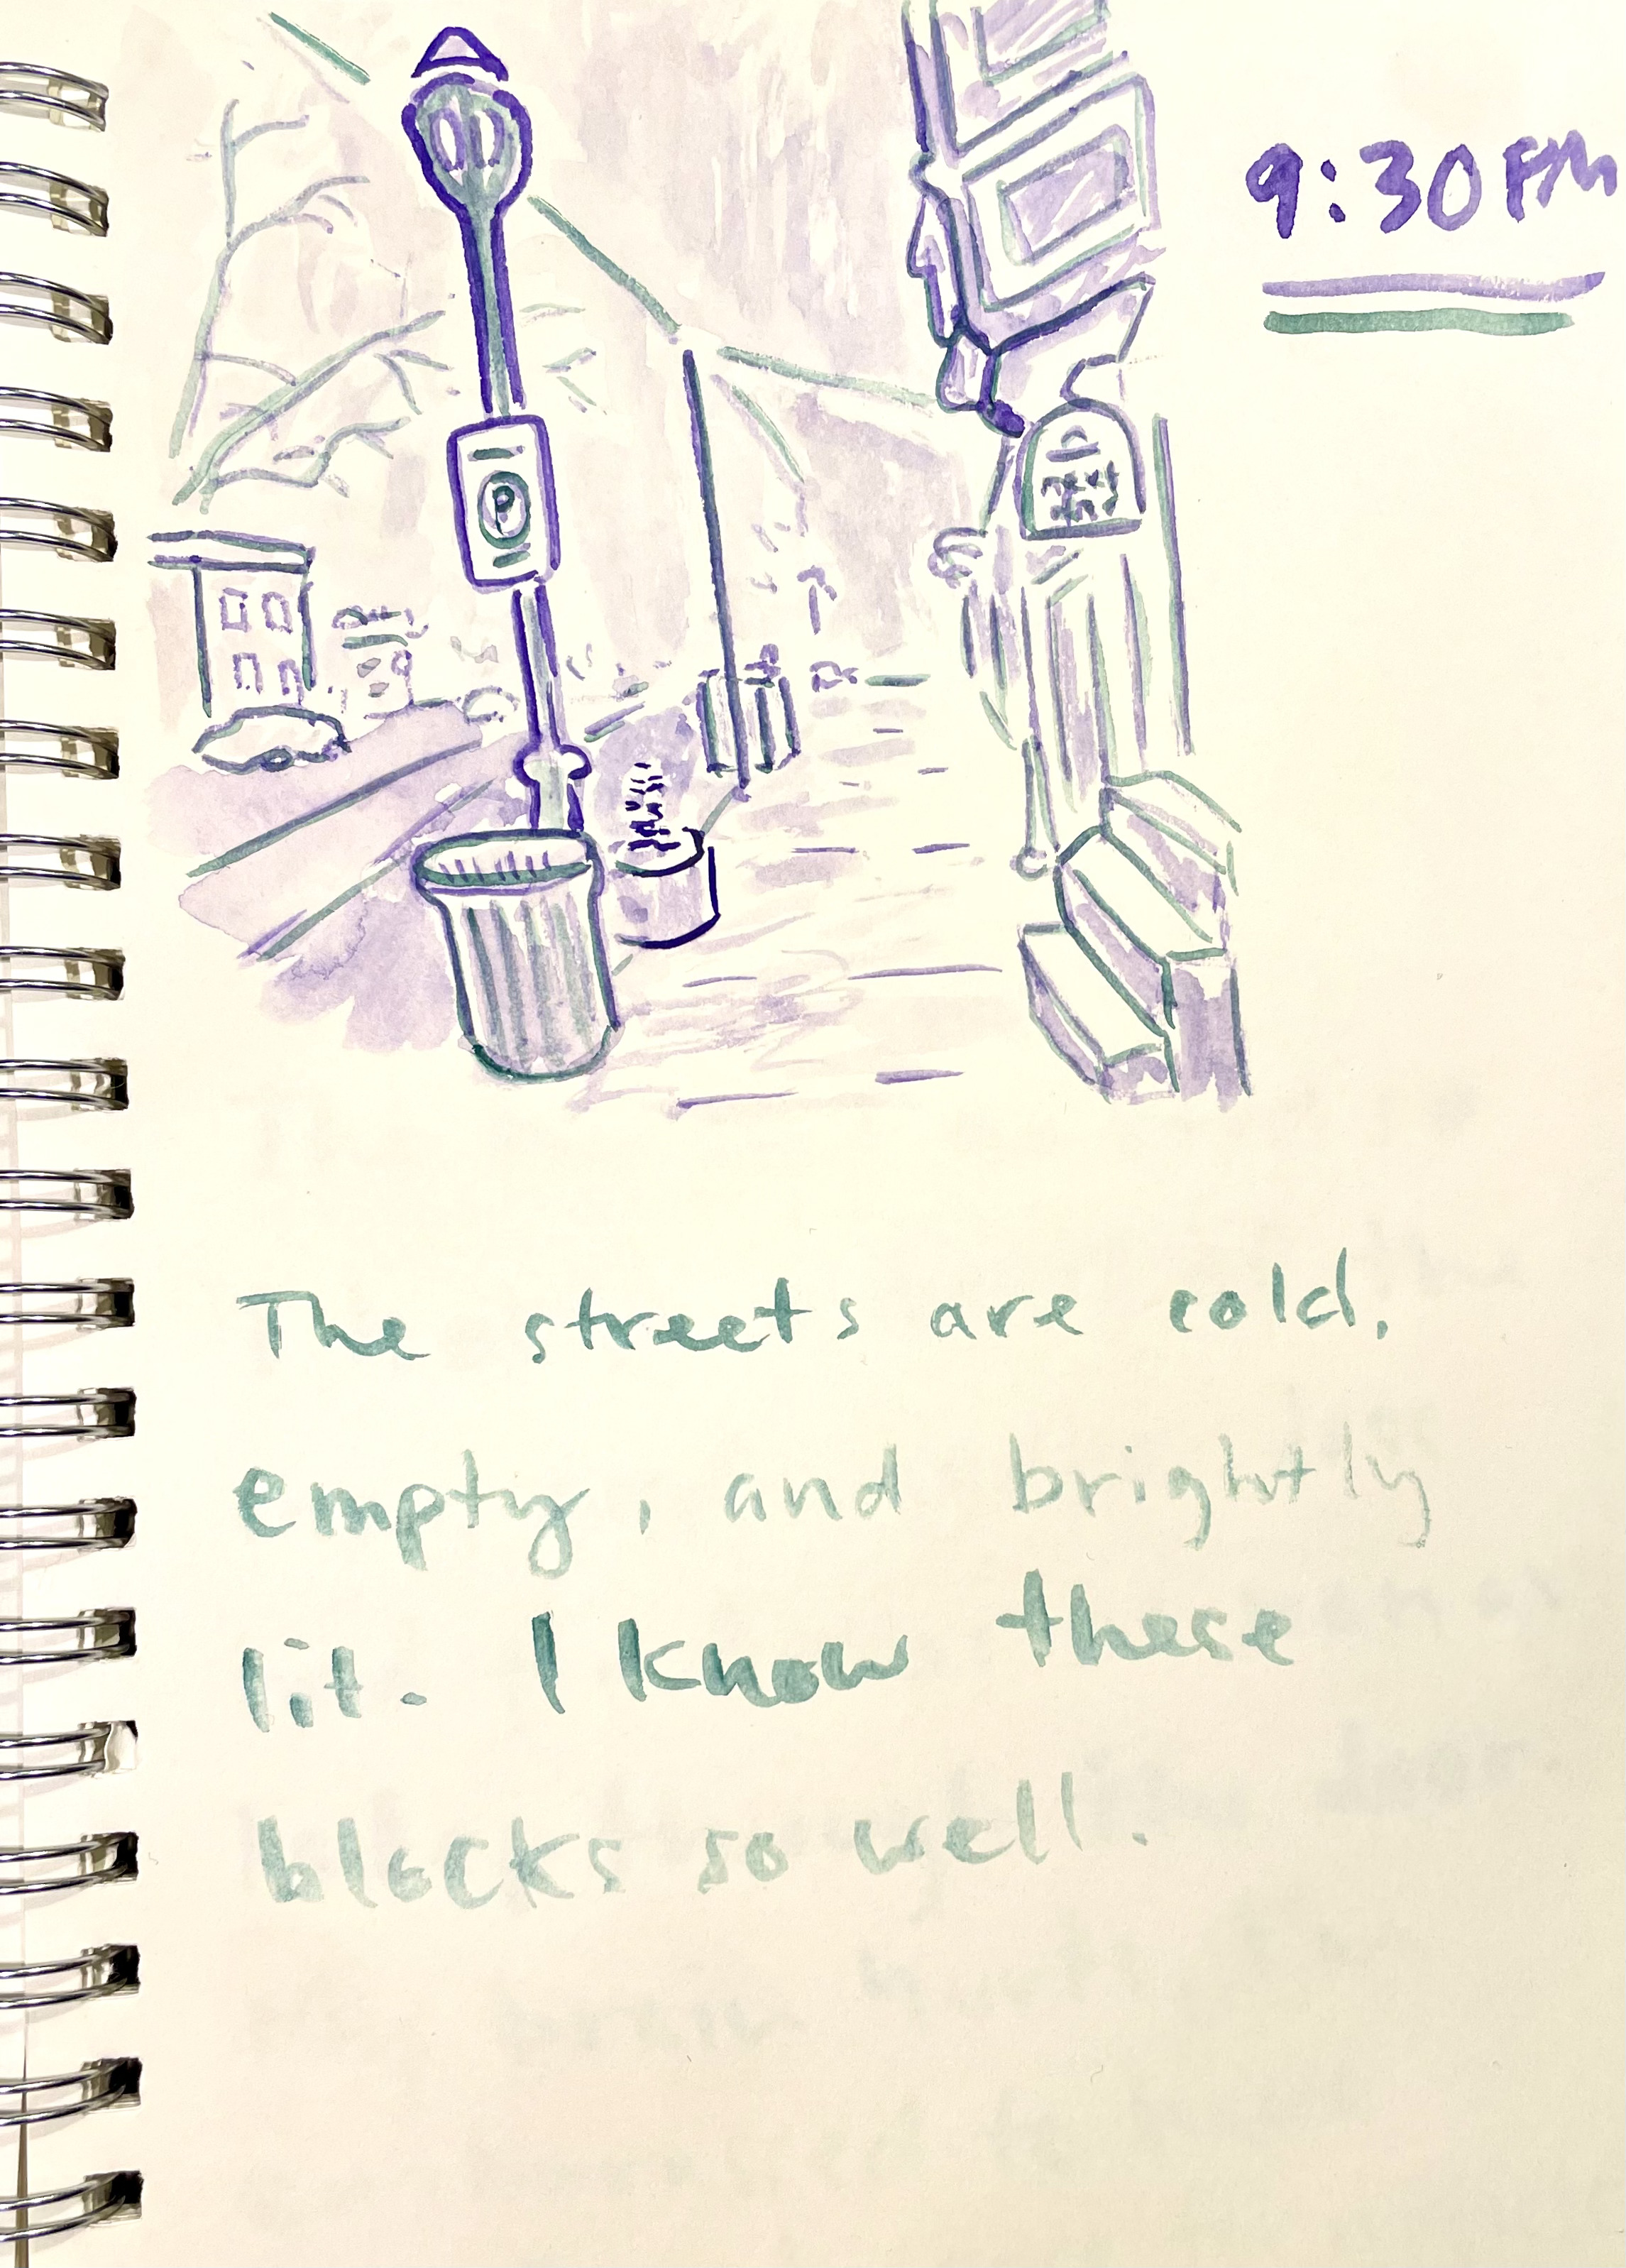 9:30 PM
P
The streets are cold,
empty, and brightly
lit. I know these
blocks so well.